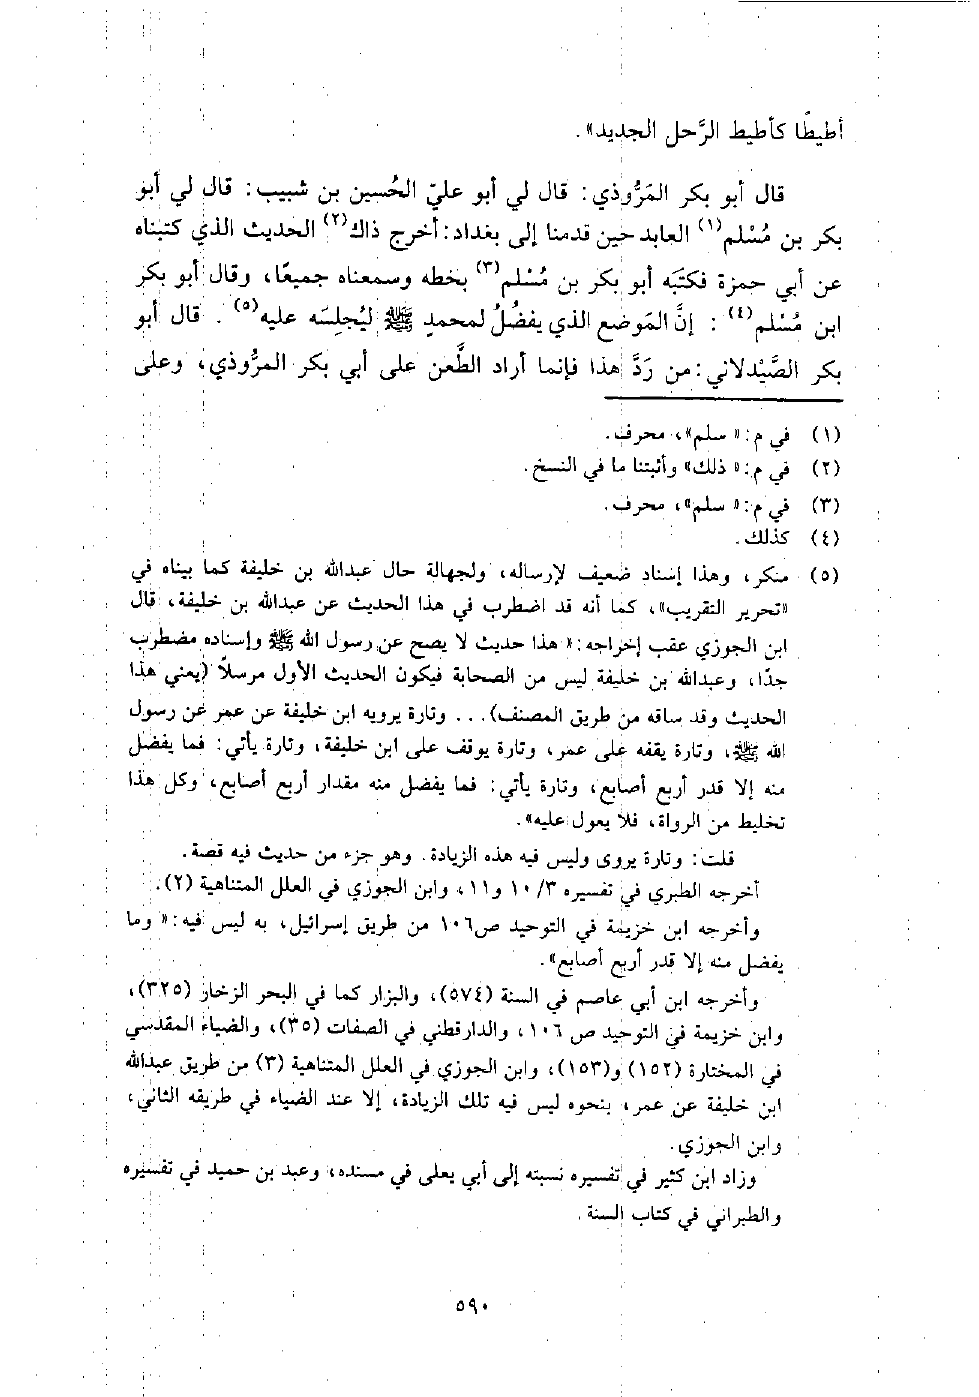 أطيطًا كأطيط الرَّحل الجديد».
قال أبو بكر المَرُّوذي: قال لي أبو عليّ الحُسين بن شبيب: قال لي أبو
بكر بن مُسْلم(١) العابد حين قدمنا إلى بغداد: أخرج ذاك(٢) الحديث الذي كتبناه
عن أبي حمزة فكتَبَه أبو بكر بن مُسْلم(٣) بخطه وسمعناه جميعًا، وقال أبو بكر
ابن مُسْلم(٤): إنَّ المَوضع الذي يفضُلُ لمحمدٍ ﷺ ليُجلِسَه عليه(٥). قال أبو
بكر الصَّيْدلاني: من رَدَّ هذا فإنما أراد الطَّعن على أبي بكر المرُّوذي، وعلى
(١) في م: «سلم»، محرف.
(٢) في م: «ذلك» وأثبتنا ما في النسخ.
(٣) في م: «سلم»، محرف.
(٤) كذلك.
(٥) منكر، وهذا إسناد ضعيف لإرساله، ولجهالة حال عبدالله بن خليفة كما بيناه في
«تحرير التقريب»، كما أنه قد اضطرب في هذا الحديث عن عبدالله بن خليفة، قال
ابن الجوزي عقب إخراجه: «هذا حديث لا يصح عن رسول الله ﷺ وإسناده مضطرب
جدًا، وعبدالله بن خليفة ليس من الصحابة فيكون الحديث الأول مرسلًا (يعني هذا
الحديث وقد ساقه من طريق المصنف)... وتارة يرويه ابن خليفة عن عمر عن رسول
الله ﷺ، وتارة يقفه على عمر، وتارة يوقف على ابن خليفة، وتارة يأتي: فما يفضل
منه إلا قدر أربع أصابع، وتارة يأتي: فما يفضل منه مقدار أربع أصابع، وكل هذا
تخليط من الرواة، فلا يعول عليه».
قلت: وتارة يروى وليس فيه هذه الزيادة. وهو جزء من حديث فيه قصة.
أخرجه الطبري في تفسيره ٣/ ١٠ و١١، وابن الجوزي في العلل المتناهية (٢).
وأخرجه ابن خزيمة في التوحيد ص١٠٦ من طريق إسرائيل، به ليس فيه: «وما
يفضل منه إلا قدر أربع أصابع».
وأخرجه ابن أبي عاصم في السنة (٥٧٤)، والبزار كما في البحر الزخار (٣٢٥)،
وابن خزيمة في التوحيد ص ١٠٦، والدارقطني في الصفات (٣٥)، والضياء المقدسي
في المختارة (١٥٢) و(١٥٣)، وابن الجوزي في العلل المتناهية (٣) من طريق عبدالله
ابن خليفة عن عمر، بنحوه ليس فيه تلك الزيادة، إلا عند الضياء في طريقه الثاني،
وابن الجوزي.
وزاد ابن كثير في تفسيره نسبته إلى أبي يعلى في مسنده، وعبد بن حميد في تفسيره
والطبراني في كتاب السنة.
٥٩٠